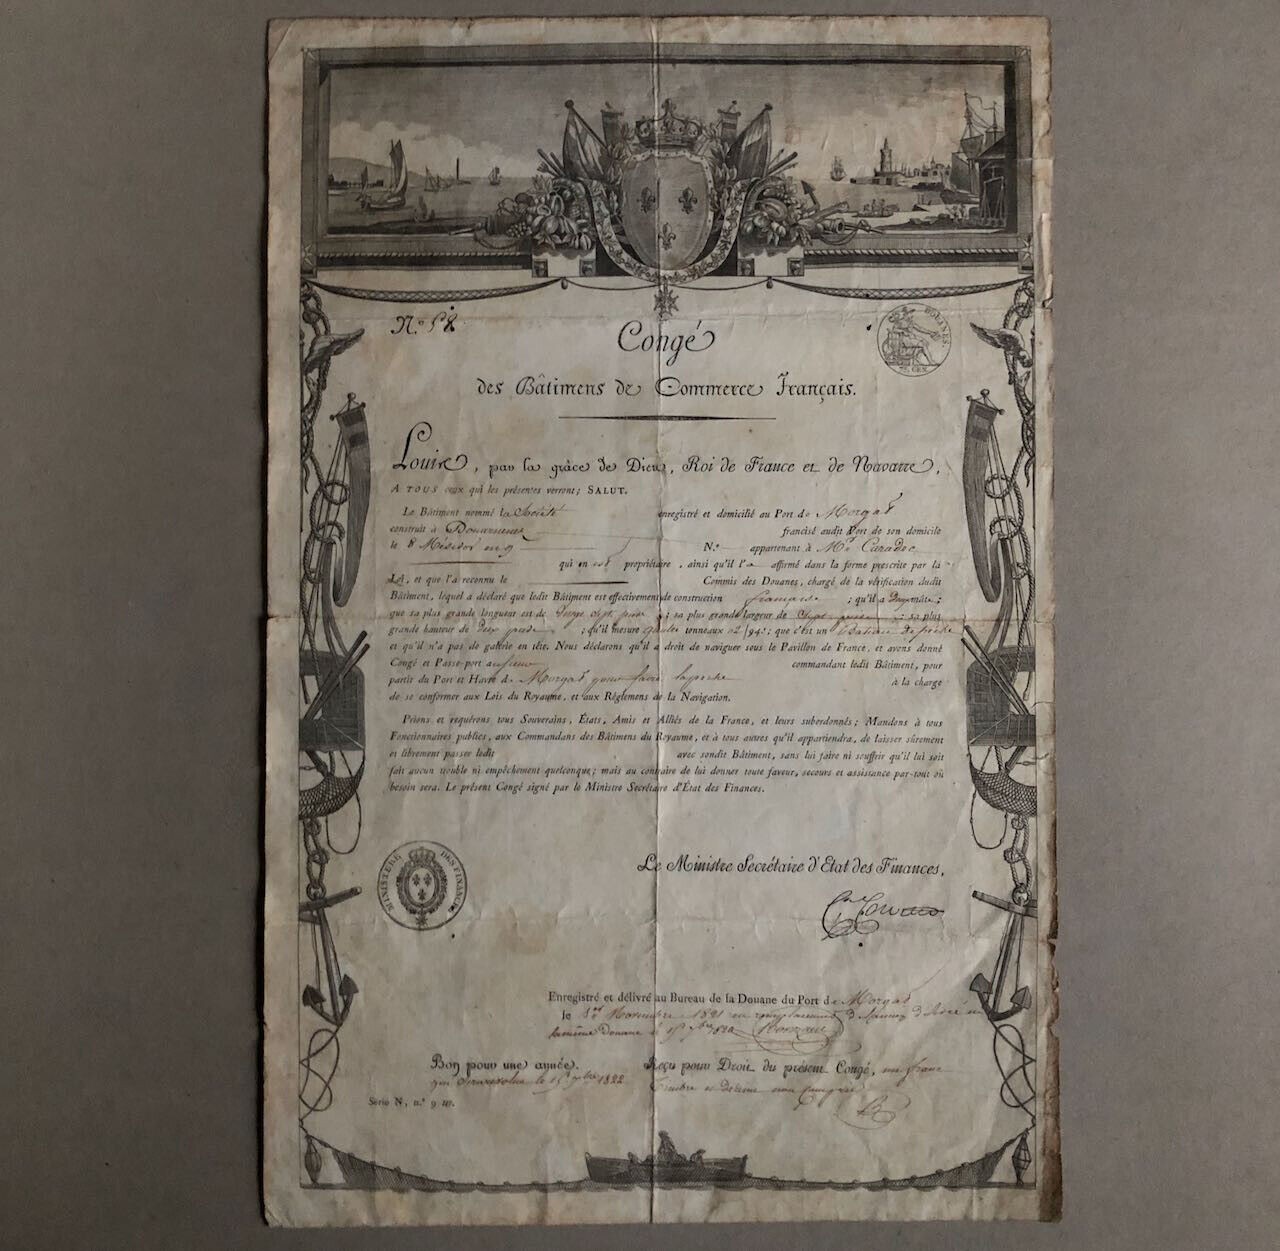 N.º 58
DOUANES.
75. CEN.
Congé
des Bâtimens de Commerce Français.
Louis, par la grâce de Dieu, Roi de France et de Navarre,
A TOUS ceux qui les présentes verront; SALUT.
Le Bâtiment nommé la Société enregistré et domicilié au Port de Morgat
construit à Douarnenez francisé audit Port de son domicile
le 8 Messidor an 9 N.º appartenant à Mr Caradec
qui en est propriétaire, ainsi qu'il l'a affirmé dans la forme prescrite par la
Loi, et que l'a reconnu le Commis des Douanes, chargé de la vérification dudit
Bâtiment, lequel a déclaré que ledit Bâtiment est effectivement de construction française; qu'il a deux mâts;
que sa plus grande longueur est de sept pieds; sa plus grande largeur de; sa plus
grande hauteur de deux pieds; qu'il mesure quatre tonneaux 02/94.e; que c'est un Bateau de pêche
et qu'il n'a pas de galerie en tête. Nous déclarons qu'il a droit de naviguer sous le Pavillon de France, et avons donné
Congé et Passe-port au sieur commandant ledit Bâtiment, pour
partir du Port et Havre de Morgat pour faire la pêche à la charge
de se conformer aux Lois du Royaume, et aux Réglemens de la Navigation.
Prions et requérons tous Souverains, États, Amis et Alliés de la France, et leurs subordonnés; Mandons à tous
Fonctionnaires publics, aux Commandans des Bâtimens du Royaume, et à tous autres qu'il appartiendra, de laisser sûrement
et librement passer ledit avec sondit Bâtiment, sans lui faire ni souffrir qu'il lui soit
fait aucun trouble ni empêchement quelconque; mais au contraire de lui donner toute faveur, secours et assistance par-tout où
besoin sera. Le présent Congé signé par le Ministre Secrétaire d'État des Finances.
MINISTÈRE DES FINANCES
Le Ministre Secrétaire d'Etat des Finances,
Enregistré et délivré au Bureau de la Douane du Port de Morgat
le Novembre 1821 en remplacement d'
la même Douane le 15 1820
Bon pour une année. Reçu pour Droit du présent Congé, un franc
qui le 15 1822 Timbre
Série N, n.º 9